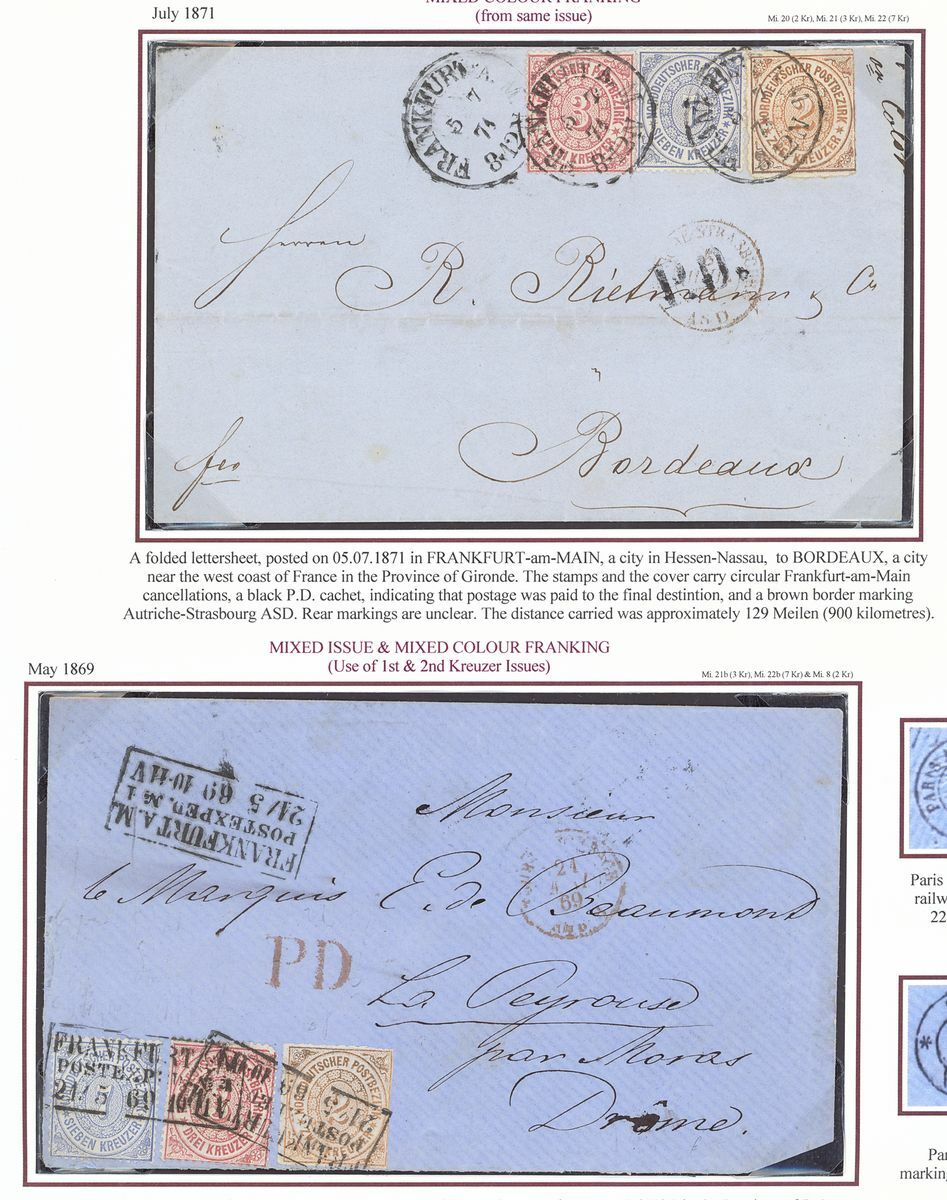 MIXED COLOUR FRANKING
July 1871
(from same issue)
Mi. 20 (2 Kr), Mi. 21 (3 Kr), Mi. 22 (7 Kr)
FRANKFURT A. M.
5 7
71
8-9
NORDDEUTSCHER POSTBEZIRK
3
DREI KREUZER
NORDDEUTSCHER POSTBEZIRK
7
SIEBEN KREUZER
NORDDEUTSCHER POSTBEZIRK
2
ZWEI KREUZER
Herren
R. Rietmann & Co
P.D.
A S D.
Bordeaux
fco
A folded lettersheet, posted on 05.07.1871 in FRANKFURT-am-MAIN, a city in Hessen-Nassau, to BORDEAUX, a city
near the west coast of France in the Province of Gironde. The stamps and the cover carry circular Frankfurt-am-Main
cancellations, a black P.D. cachet, indicating that postage was paid to the final destintion, and a brown border marking
Autriche-Strasbourg ASD. Rear markings are unclear. The distance carried was approximately 129 Meilen (900 kilometres).
MIXED ISSUE & MIXED COLOUR FRANKING
May 1869
(Use of 1st & 2nd Kreuzer Issues)
Mi. 21b (3 Kr), Mi. 22b (7 Kr) & Mi. 8 (2 Kr)
FRANKFURT A. M.
POSTEXPED. № 1
21/5 69 10-11 V
Monsieur
le Marquis E. de Beaumont
21
69
PD
La Peyrouse
par Moras
Drôme.
FRANKFURT
POSTEXP:
21/5 69
SIEBEN KREUZER
DREI KREUZER
NORDDEUTSCHER POSTBEZIRK
2
PARIS
Paris
railw
22
Par
marking